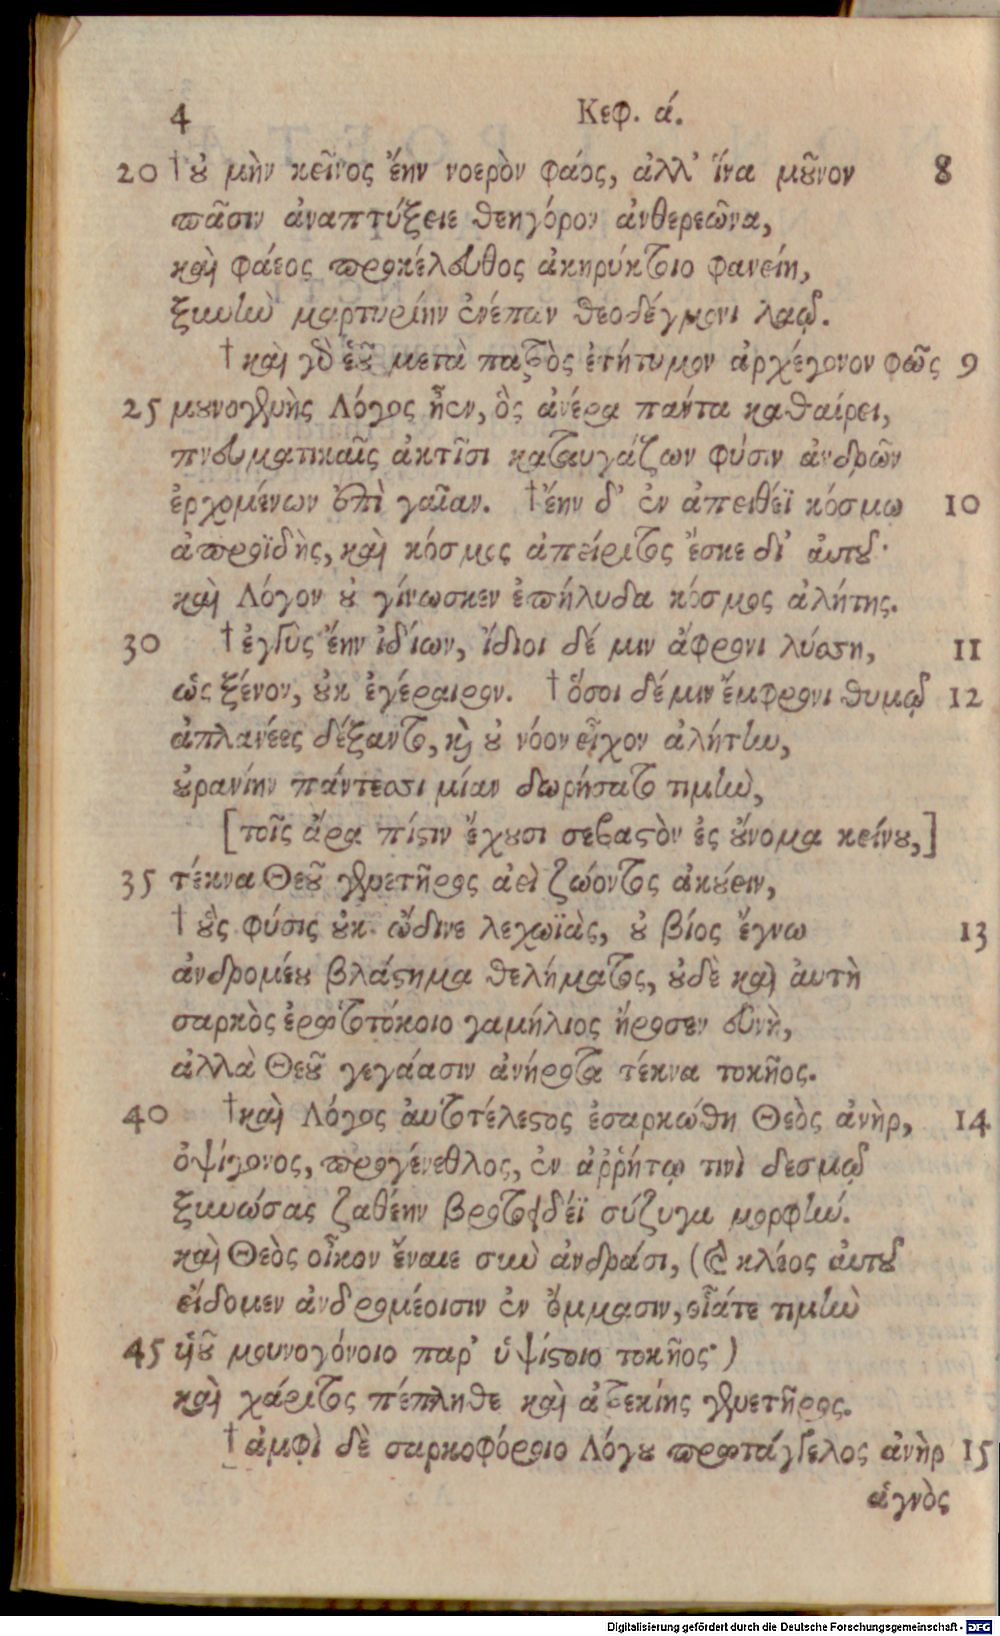 4 Κεφ. ά.
20 †οὐ μὴν κεῖνος ἔην νοερὸν φάος, ἀλλ᾽ ἵνα μοῦνον 8
πᾶσιν ἀναπτύξειε θεηγόρον ἀνθερεῶνα,
καὶ φάεος προκέλευθος ἀκηρύκτοιο φανείη,
ξυνὴν μαρτυρίην ἐνέπων θεοδέγμονι λαῷ.
† καὶ γὰρ ἑοῦ μετὰ πατρὸς ἐτήτυμον ἀρχέγονον φῶς 9
25 μουνογενὴς Λόγος ἦεν, ὃς ἀνέρα πάντα καθαίρει,
πνευματικαῖς ἀκτῖσι καταυγάζων φύσιν ἀνδρῶν
ἐρχομένων ἐπὶ γαῖαν. †ἔην δ᾽ ἐν ἀπειθέϊ κόσμῳ 10
ἀπροϊδὴς, καὶ κόσμος ἀπείριτος ἔσκε δι᾽ αὐτοῦ·
καὶ Λόγον οὐ γίνωσκεν ἐπήλυδα κόσμος ἀλήτης.
30 † ἐγγὺς ἔην ἰδίων, ἴδιοι δέ μιν ἄφρονι λύσσῃ, 11
ὡς ξένον, οὐκ ἐγέραιρον. † ὅσοι δέ μιν ἔμφρονι θυμῷ 12
ἀπλανέες δέξαντο, καὶ οὐ νόον εἶχον ἀλήτην,
οὐρανίην πάντεσσι μίαν δωρήσατο τιμὴν,
[τοῖς ἄρα πίστιν ἔχουσι σεβαστὸν ἐς οὔνομα κείνου,]
35 τέκνα Θεοῦ γενετῆρος ἀεὶ ζώοντος ἀκούειν,
† οὓς φύσις οὐκ ὤδινε λεχωϊὰς, οὐ βίος ἔγνω 13
ἀνδρομέου βλάστημα θελήματος, οὐδὲ καὶ αὐτὴ
σαρκὸς ἐρωτοτόκοιο γαμήλιος ἤροσεν εὐνὴ,
ἀλλὰ Θεοῦ γεγάασιν ἀνήροτα τέκνα τοκῆος.
40 †καὶ Λόγος αὐτοτέλεστος ἐσαρκώθη Θεὸς ἀνὴρ, 14
ὀψίγονος, προγένεθλος, ἐν ἀῤῥήτῳ τινὶ δεσμῷ
ξυνώσας ζαθέην βροτοειδέϊ σύζυγα μορφήν.
καὶ Θεὸς οἶκον ἔναιε σὺν ἀνδράσι, (καὶ κλέος αὐτοῦ
εἴδομεν ἀνδρομέοισιν ἐν ὄμμασιν, οἷάτε τιμὴν
45 υἱοῦ μουνογόνοιο παρ᾽ ὑψίστοιο τοκῆος·)
καὶ χάριτος πέπληθε καὶ ἀτρεκίης γενετῆρος.
† ἀμφὶ δὲ σαρκοφόροιο Λόγου πρωτάγγελος ἀνὴρ 15
ἁγνὸς
Digitalisierung gefördert durch die Deutsche Forschungsgemeinschaft - DFG